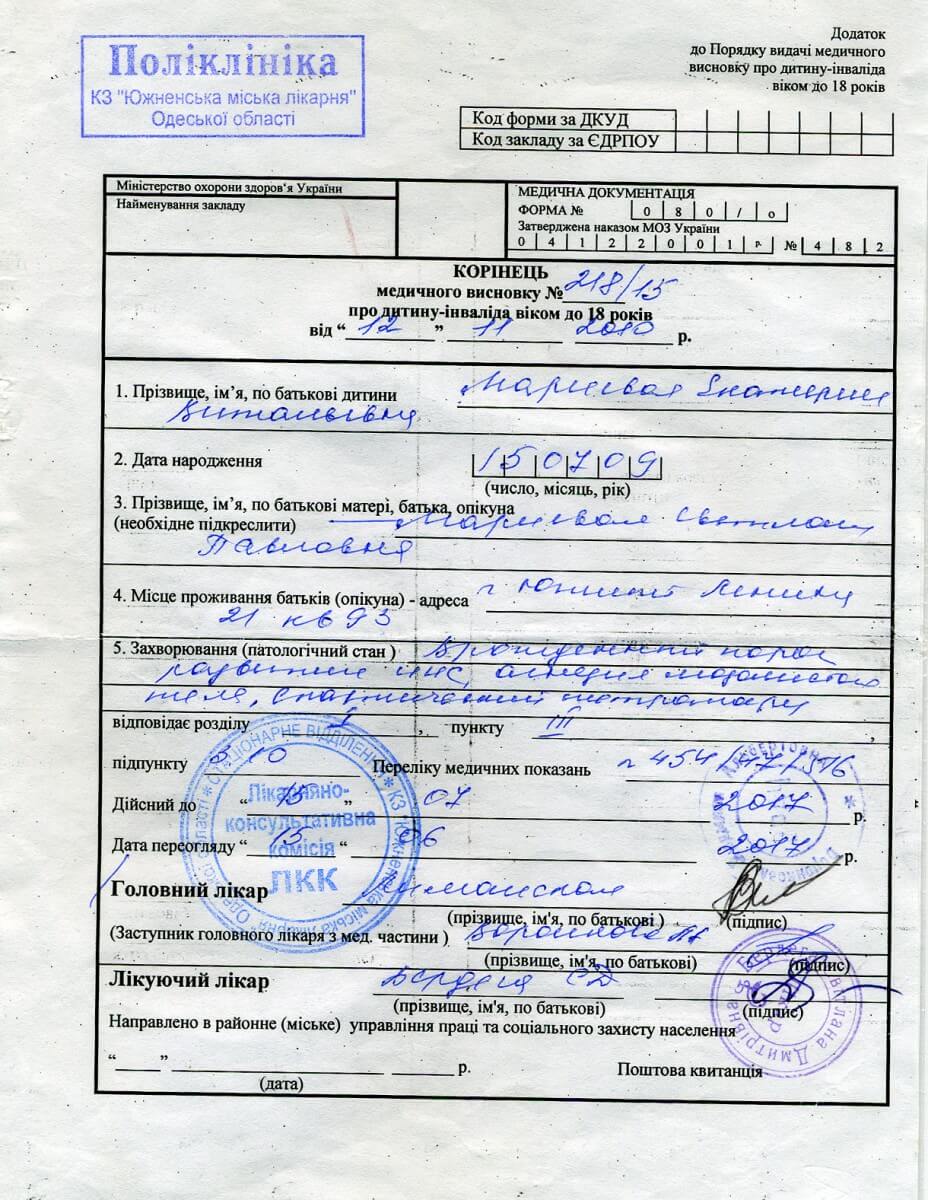 Поліклініка
КЗ "Южненська міська лікарня"
Одеської області
Додаток
до Порядку видачі медичного
висновку про дитину-інваліда
віком до 18 років
Код форми за ДКУД
Код закладу за ЄДРПОУ
Міністерство охорони здоров'я України
Найменування закладу
МЕДИЧНА ДОКУМЕНТАЦІЯ
ФОРМА № 0 8 0 / о
Затверджена наказом МОЗ України
0 4 1 2 2 0 0 1 р. № 4 8 2
КОРІНЕЦЬ
медичного висновку № 218/15
про дитину-інваліда віком до 18 років
від “ 12 ” 11 2010 р.
1. Прізвище, ім’я, по батькові дитини Екатерина
Витальевна
2. Дата народження 1 5 0 7 0 9
(число, місяць, рік)
3. Прізвище, ім’я, по батькові матері, батька, опікуна
(необхідне підкреслити) Светлана
Павловна
4. Місце проживання батьків (опікуна) - адреса г Ленина
21 кв 93
5. Захворювання (патологічний стан ) Врожденный порок
развития цнс, агенезия мозолистого
тела, спастический тетрапарез
відповідає розділу I , пункту III ,
підпункту 3 10 Переліку медичних показань
Дійсний до “ 15 ” 07 2017 р.
Дата переогляду “ 15 “ 06 2017 р.
Головний лікар
(прізвище, ім'я, по батькові ) (підпис)
(Заступник головного лікаря з мед. частини )
(прізвище, ім'я, по батькові) (підпис)
Лікуючий лікар СД
(прізвище, ім'я, по батькові) (підпис)
Направлено в районне (міське) управління праці та соціального захисту населення
“ ” р. Поштова квитанція
(дата)
СТАЦІОНАРНЕ ВІДДІЛЕННЯ * КЗ "Южненська міська лікарня" Одеської області *
Лікарняно-
консультативна
комісія
ЛКК
Світлана Дмитрівна